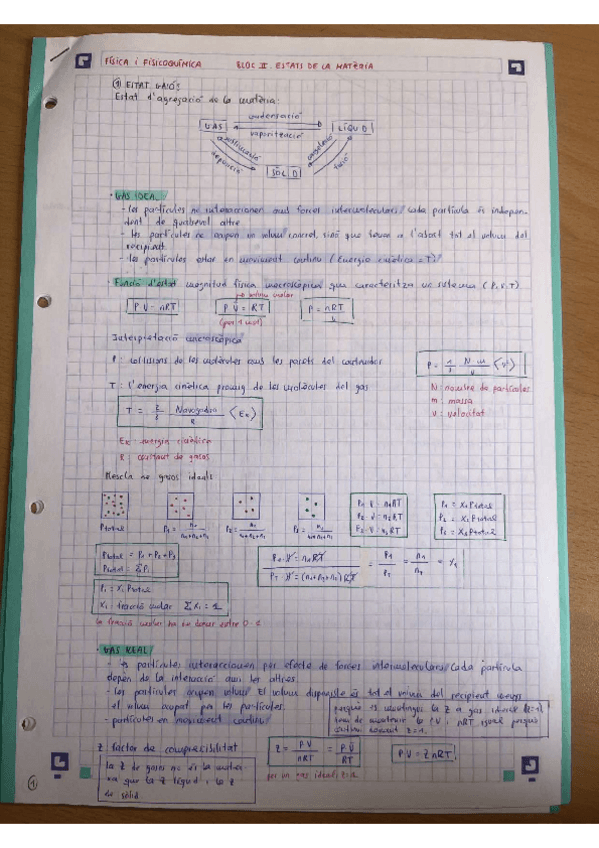 FÍSICA i FISICOQUÍMICA
BLOC II. ESTATS DE LA MATÈRIA
① ESTAT GASÓS
Estat d'agregació de la matèria:
condensació
GAS
LÍQUID
vaporització
sublimació
deposició
SÒLID
fusió
· GAS IDEAL
- les partícules no interaccionen amb forces intermoleculars / cada partícula és indepen
dent de qualsevol altre
- les partícules no ocupen un volum concret, sinó que tenen a l'abast tot el volum del
recipient
- les partícules estan en moviment continu (Energia cinètica = T)
· Funció d'estat: magnitud física macroscòpica que caracteritza un sistema (P, V, T)
P V = nRT
volum molar
P V = RT
(per 1 mol)
P = nRT / V
Interpretació microscòpica
P: col·lisions de les molècules amb les parets del contenidor
T: l'energia cinètica promig de les molècules del gas
N: nombre de partícules
m: massa
v: velocitat
T = 2/3 Navogadro / R ⟨Ek⟩
Ek: energia cinètica
R: constant de gasos
Mescla de gasos ideals
Ptotal
P1 = n1 / n1+n2+n3
P1·V = n1RT
P2·V = n2RT
P3·V = n3RT
P1 = X1Ptotal
P2 = X2Ptotal
P3 = X3Ptotal
Ptotal = P1 + P2 + P3
Ptotal = ΣPi
P1·V = n1RT / PT·V = (n1+n2+n3)RT = P1 / PT = n1 / nT = X1
Pi = XiPtotal
Xi: fracció molar ΣXi = 1
la fracció molar ha de donar entre 0-1
· GAS REAL
- les partícules interaccionen per efecte de forces intermoleculars / cada partícula
depèn de la interacció amb les altres
- les partícules ocupen volum / El volum disponible és tot el volum del recipient menys
el volum ocupat per les partícules
- partícules en moviment continu
Z factor de compressibilitat
Z = PV / nRT = PV / RT
PV = ZnRT
per un gas ideal, Z=1
la Z de gasos no és la mateixa
que la Z líquid i la Z
de sòlid
①